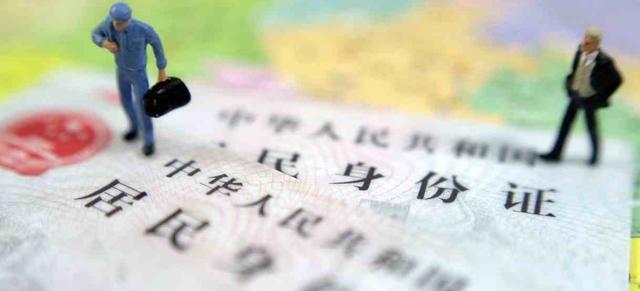 中华人民共和国
民身份证
中华人民共和国
居民身